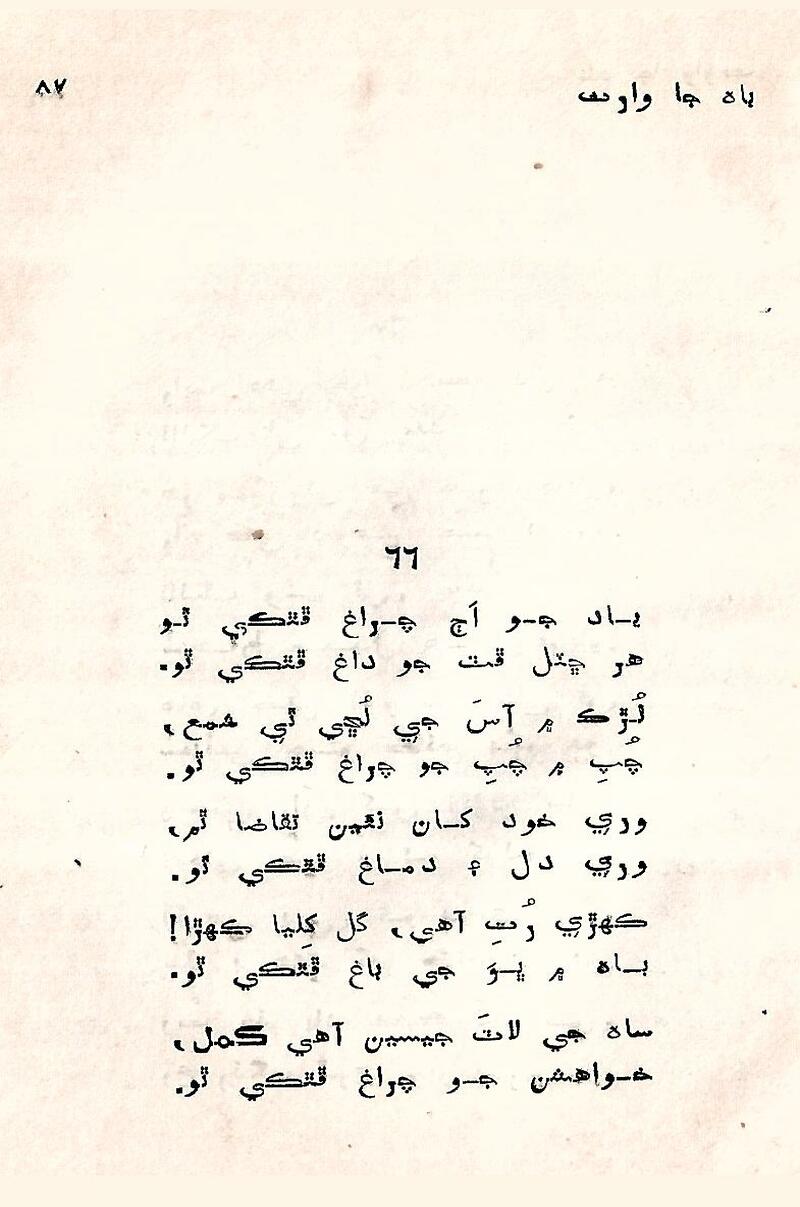 باھ جا وارث
٨٧
٦٦
يـاد جـو اَڄ چـراغ ڦٽڪي ٿـو
هر ڇڏيل ڦٽ جو داغ ڦٽڪي ٿو.
لُڙڪ ۾ آسَ جي لُڇي ٿي شمع،
چُپِ ۾ چُپِ جو چراغ ڦٽڪي ٿو.
وري خود کـان نئين تقاضا ٿم،
وري دل ۽ دمـاغ ڦٽڪي ٿو.
ڪهڙي رُتِ آهي، گل کِليا ڪهڙا!
بـاھ ۾ ڀـوَ جي باغ ڦٽڪي ٿو.
ساھ جي لاٽَ جيسين آهي ڪمل،
خـواهشن جـو چراغ ڦٽڪي ٿو.